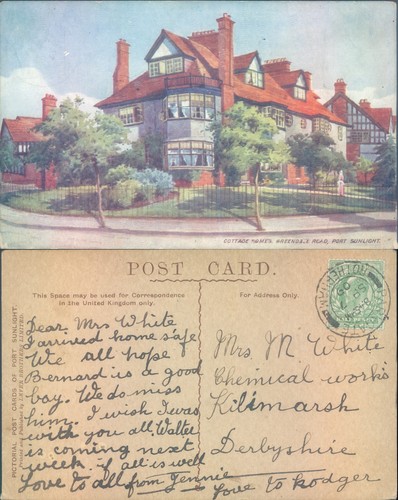 COTTAGE HOMES, GREENDALE ROAD, PORT SUNLIGHT.
POST CARD.
This Space may be used for Correspondence
in the United Kingdom only.
For Address Only.
PICTORIAL POST CARDS OF PORT SUNLIGHT.
Dear Mrs White
I arrived home safe
We all hope
Bernard is a good
boy. We do miss
him. I wish I was
with you all. Walter
is coming next
week if all is well
Love to all from Jennie
Love to Rodger
Mrs M White
Chemical works
Kilimarsh
Derbyshire